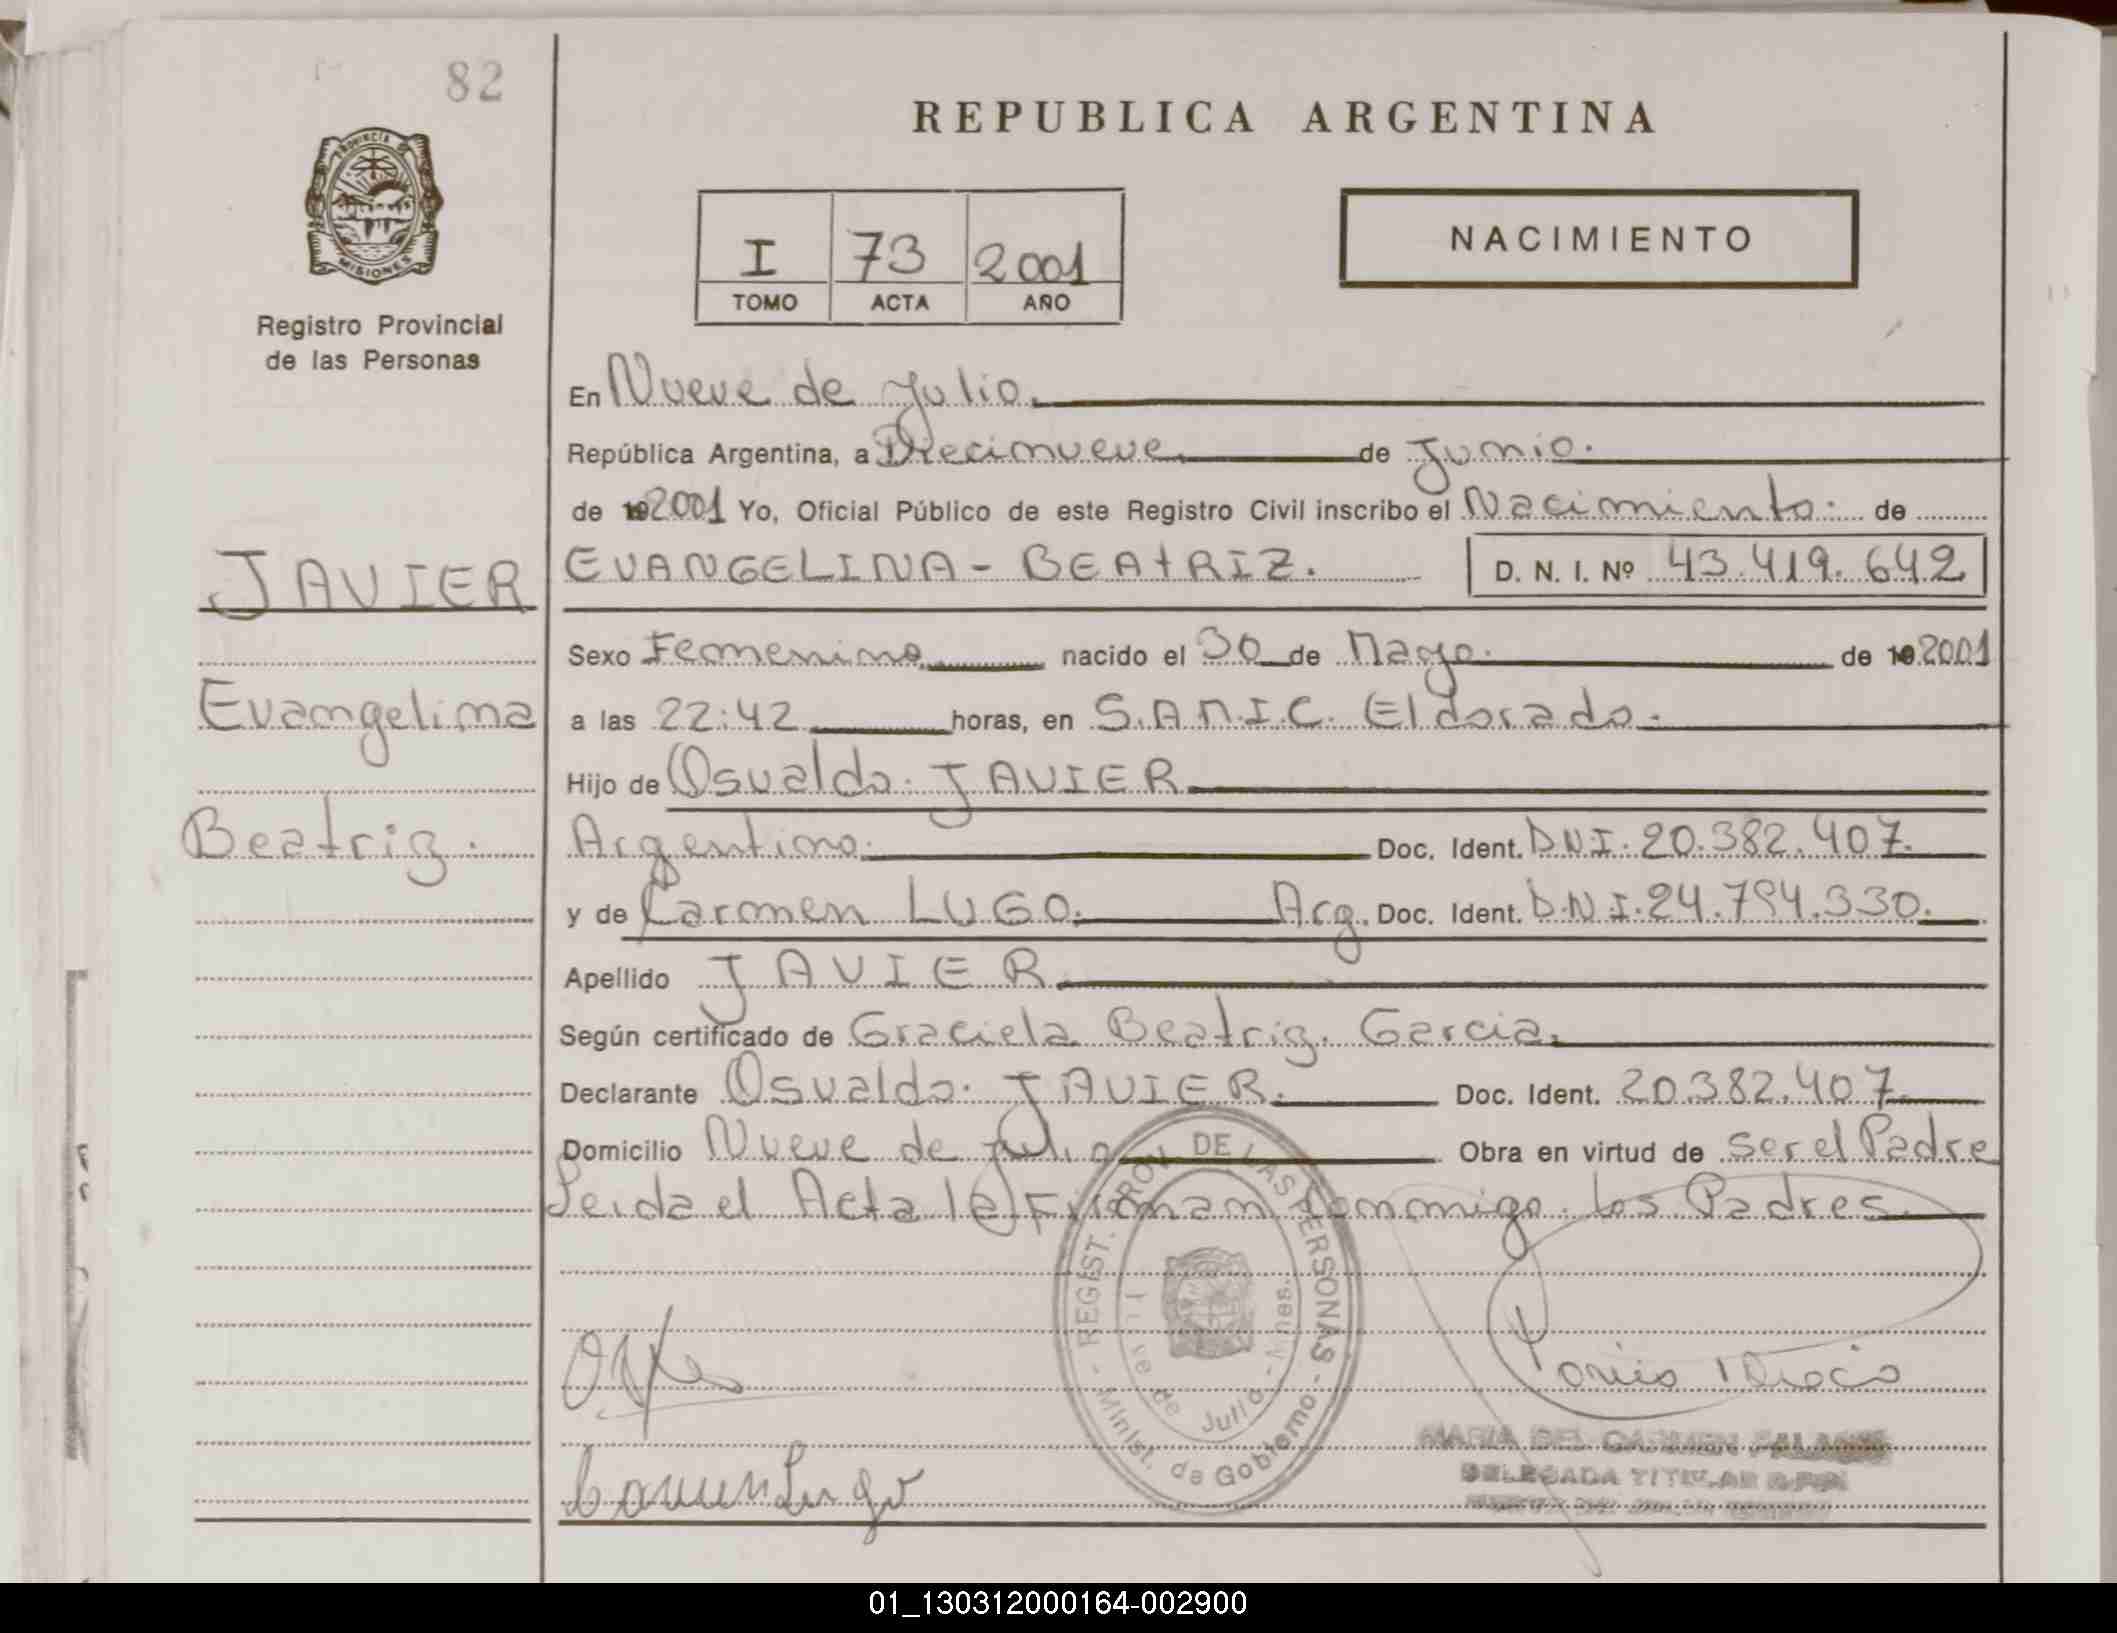 82
REPUBLICA ARGENTINA
PROVINCIA DE
MISIONES
Registro Provincial
de las Personas
I 73 2001
TOMO ACTA AÑO
NACIMIENTO
En Nueve de Julio.
República Argentina, a Diecinueve de Junio.
de 192001 Yo, Oficial Público de este Registro Civil inscribo el Nacimiento. de
JAVIER
EVANGELINA - BEATRIZ. D. N. I. Nº 43.419.642
Sexo Femenino nacido el 30 de Mayo. de 192001
Evangelina
a las 22:42 horas, en S.A.M.I.C. Eldorado.
Hijo de Osvaldo. JAVIER
Beatriz.
Argentino. Doc. Ident. DNI. 20.382.407.
y de Carmen LUGO. Arg. Doc. Ident. D.N.I. 24.794.330.
Apellido JAVIER.
Según certificado de Graciela Beatriz. Garcia.
Declarante Osvaldo. JAVIER. Doc. Ident. 20382.407.
Domicilio Nueve de Julio Obra en virtud de ser el Padre
Leida el Acta la Firman Conmigo. los Padres.
REGIST. PROV. DE LAS PERSONAS - Minist. de Gobierno -
de Julio - Mnes.
Carmen Lugo
MARIA DEL CARMEN
DELEGADA TITULAR
01_130312000164-002900